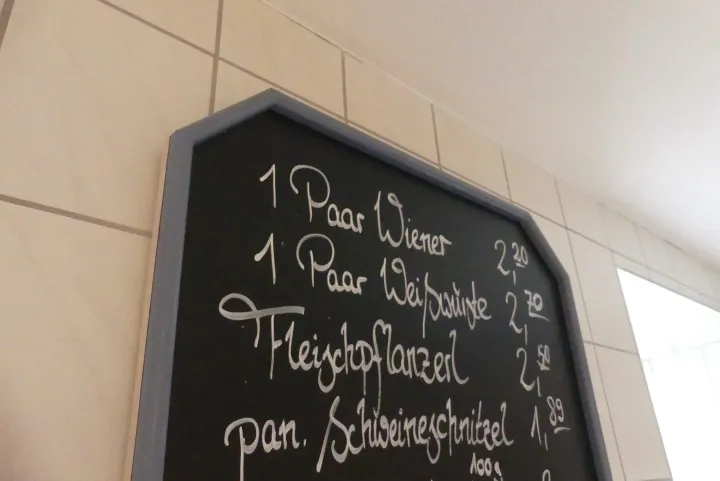 1 Paar Wiener 2,20
1 Paar Weißwürste 2,70
Fleischpflanzerl 2,50
pan. Schweineschnitzel 1,89
100g